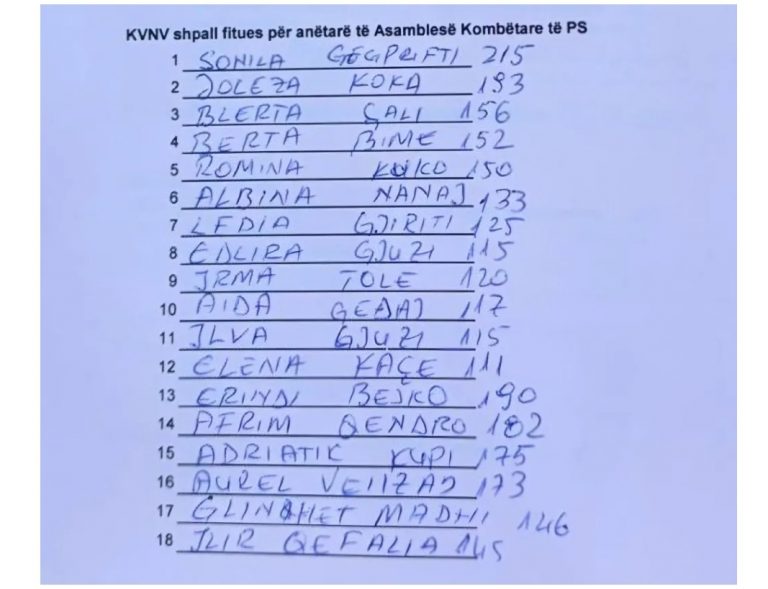 KVNV shpall fitues për anëtarë të Asamblesë Kombëtare të PS
1 SONILA GEGPRIFTI 215
2 JOLEZA KOKA 193
3 BLERTA ÇALI 156
4 BERTA BIME 152
5 ROMINA KOKO 150
6 ALBINA NANAJ 133
7 LEDIA GJIRITI 125
8 EDLIRA GJUZI 115
9 IRMA TOLE 120
10 AIDA GEGAJ 117
11 ILVA GJUZI 115
12 ELENA KAÇE 111
13 BEJKO 190
14 AFRIM QENDRO 182
15 ADRIATIK KUPI 175
16 AUREL 173
17 MADHI 146
18 ILIR QEFALIA 145